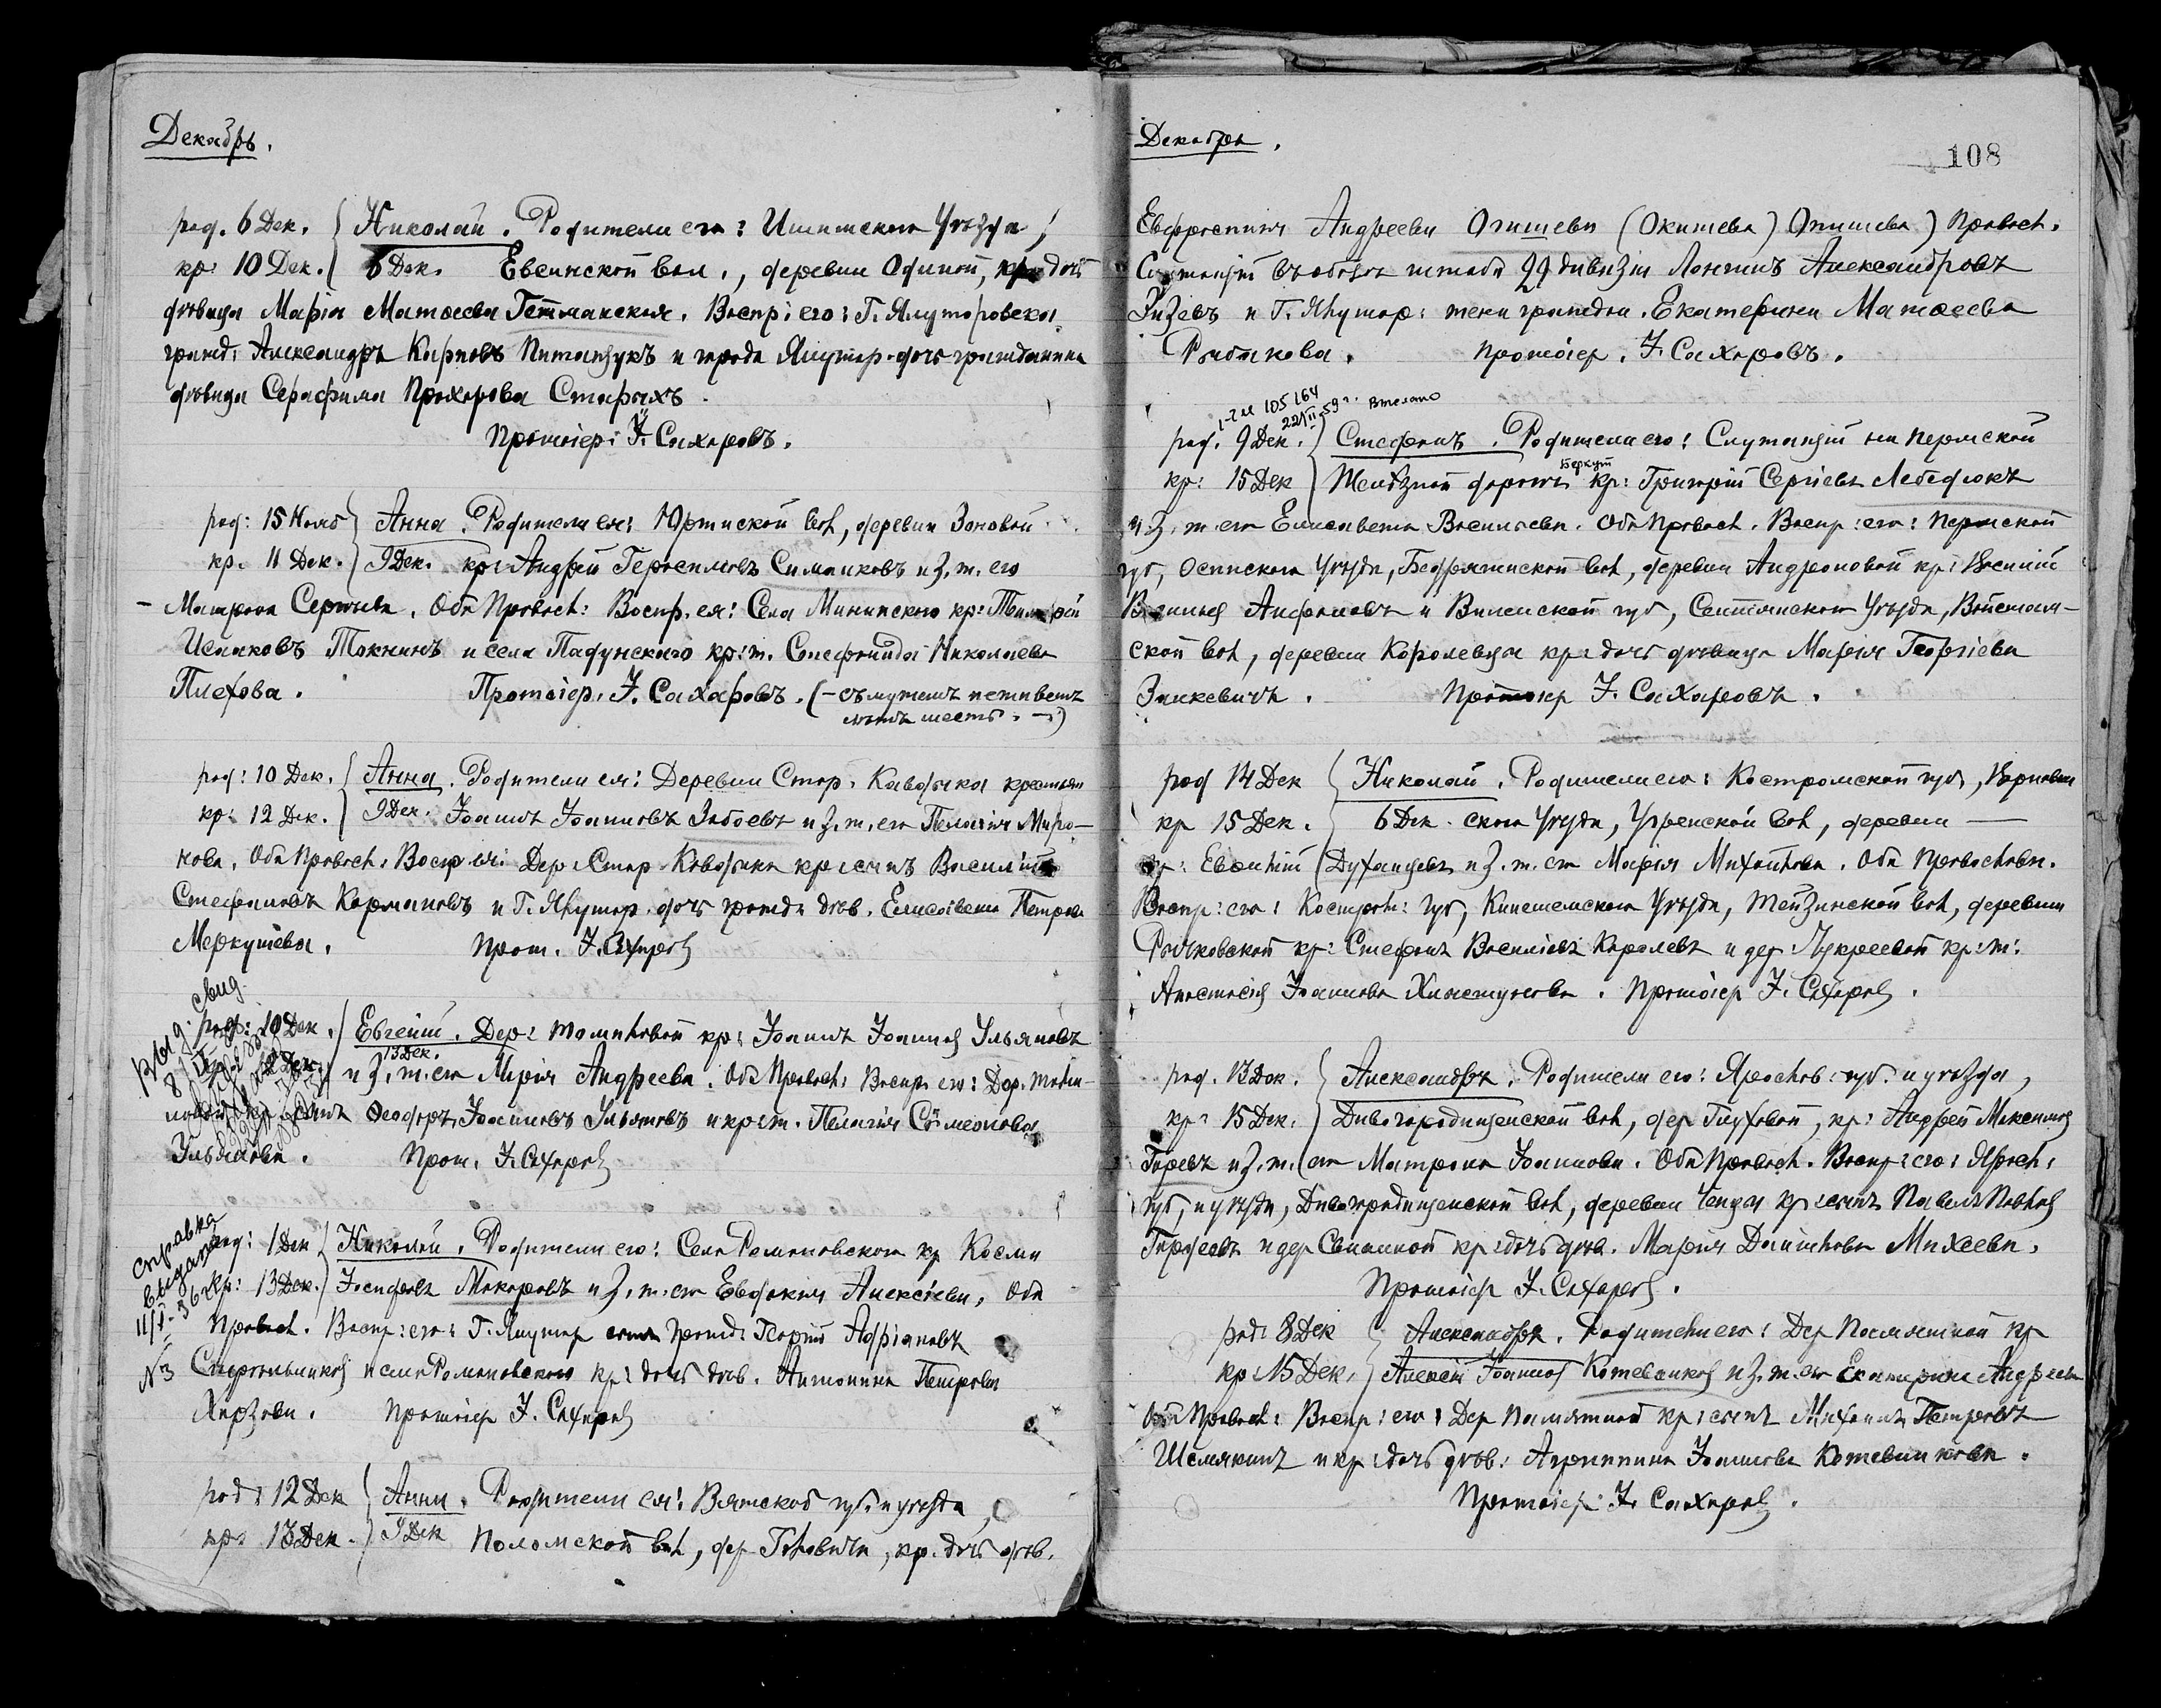 Декабрь.
род. 6 Дек. Николай. Родители его: Ишимскаго Уѣзда,
кр: 10 Дек. 6 Дек. Евсинской вол., деревни Одиной, кр. дочь
дѣвица Марія Матѳеева Гетманская. Воспр: его: Г. Ялуторовска
гражд: Александръ Карповъ и города Ялутор. дочь гражданина
дѣвица Серафима Прохорова Старыхъ.
Протоіер: І. Сахаровъ.
род: 15 Нояб Анна. Родители ея: Юргиской вол, деревни Зоновой
кр. 11 Дек. 9 Дек. кр: Андрей Герасимовъ Симаковъ и з. ж. его
Матрона Сергіева. Оба Правосл: Воспр. ея: Села Мининскаго кр:
Исааковъ Токнинъ и села Падунскаго кр: ж. Стефанида Николаева
Плехова. Протоіер. І. Сахаровъ.
род: 10 Дек. Анна. Родители ея: Деревни Стар. Кавдычка крестьян
кр: 12 Дек. 9 Дек. Іоаннъ Іоанновъ Забоевъ и з. ж. его Пелагія Миро-
нова. Оба Правосл. Воспр ея: Дер Стар Кавдычка кр: сынъ Василій
Стефановъ Кармановъ и Г. Ялутор. дочь гражд: дѣв. Елисавета Петрова
Меркушева. Прот. І. Сахаровъ
Выд. свид.
род: 10 Дек. Евгеній. Дер: Томиловой кр: Іоаннъ Іоанновъ Ульяновъ
13 Дек.
и з. ж. его Марія Андреева. Оба Правосл: Воспр: его: Дер. Томи-
ловой кр: сынъ Ѳеодоръ Іоанновъ Ульяновъ и кр: ж. Пелагія Сѵмеонова
Ульянова. Прот. І. Сахаровъ
справка
выдана
11/I-36 г.
№3
род: 1 Дек Николай. Родители его: Села Романовскаго кр Косма
кр: 13 Дек. Іосифовъ Макаровъ и з. ж. его Евдокия Алексіева, Оба
Правосл. Воспр: его: Г. Ялутор сынъ гражд: Георгій Адріановъ
и села Романовскаго кр: дочь дѣв. Антонина Петрова
Хирзова. Протоіер І. Сахаровъ
род: 12 Дек Анна. Родители ея: Вятской губ. и уѣзда,
кр: 13 Дек. 9 Дек Поломской вол, дер , кр. дочь дѣв.
Декабрь.
108
Евфросинія Андреева Огишева (Окишева) Опишева) Правосл.
Служащій въ обозѣ штаба 29 дивизіи Логинъ Александровъ
Зизевъ и Г. Ялутор: жена гражд. Екатерина Матѳеева
Рыбакова. Протоіер. І. Сахаровъ.
105164
род. 9 Дек. Стефанъ. Родители его: Служащій на Пермской
Беркут
кр: 15 Дек Желѣзной дорогѣ кр: Григорій Сергіевъ Лебедюкъ
и з. ж. его Елисавета Васильева. Оба Правосл. Воспр: его: Пермской
губ, Осинскаго Уѣзда, Бедряжинской вол, деревни Андроновой кр: Василій
Васильев Анфановъ и Виленской губ, Свентянскаго Уѣзда, Войстом-
ской вол, деревни Королевцы кр: дочь дѣвица Марія Георгіева
Занкевичъ. Протоіер І. Сахаровъ.
род 14 Дек Николай. Родители его: Костромской губ, Варнавин
кр 15 Дек. 6 Дек. скаго Уѣзда, Уренской вол, деревни —
кр: Евѳимій Духанцевъ и з. ж. его Марія Михайлова. Оба Православн.
Воспр: его: Костром: губ, Кинешемскаго Уѣзда, Тезинской вол, деревни
Рычковской кр: Стефанъ Василіевъ Королевъ и дер. кр: ж:
Анастасія Іоаннова Хластунова. Протоіер І. Сахаровъ.
род. 13 Дек. Александръ. Родители его: Яросл: губ. и уѣзда,
кр: 15 Дек. Дивогородищенской вол, дер Глуховой, кр: Андрей Максимов
Гиревъ и з. ж. его Матрона Іоаннова. Оба Правосл. Воспр: его: Яросл:
губ, и уѣзда, Дивогородищенской вол, деревни кр: сынъ Павелъ Павлов
и дер Свининой кр: дочь дѣв. Марія Даниилова Михеева.
Протоіер І. Сахаровъ.
род: 8 Дек Александръ. Родители его: Дер Памятной кр
кр 15 Дек. Алексій Іоаннов Котевников и з. ж. его Екатерина Андреева
Оба Правосл: Воспр: его: Дер Памятной кр: сынъ Михаилъ Петровъ
Шемякинъ и кр: дочь дѣв: Агриппина Іоаннова Котевникова.
Протоіер: І. Сахаровъ.